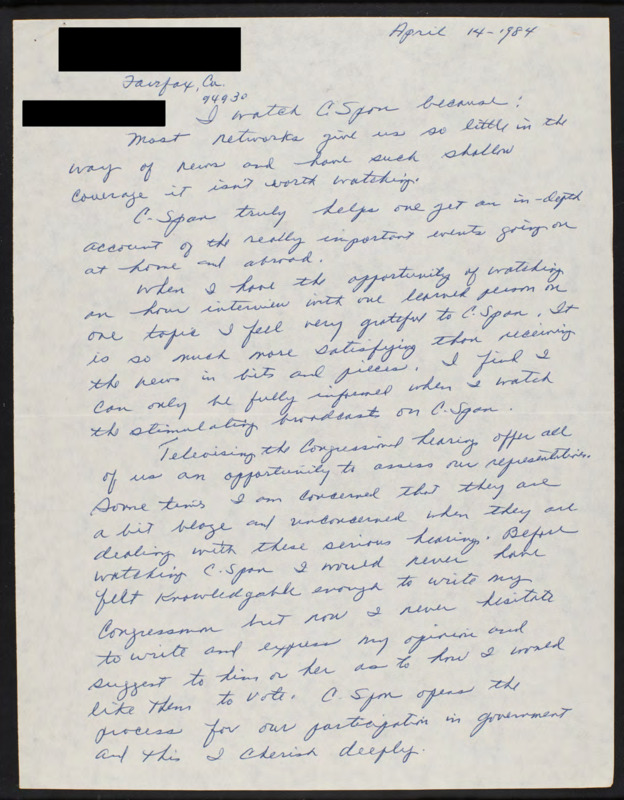 April 14-1984
Fairfax, Ca.
94930
I watch C-Span because:
Most networks give us so little in the
way of news and have such shallow
coverage it isn't worth watching.
C-Span truly helps one get an in-depth
account of the really important events going on
at home and abroad.
When I have the opportunity of watching
an hour interview with one learned person on
one topic I feel very grateful to C-Span. It
is so much more satisfying than receiving
the news in bits and pieces. I find I
can only be fully informed when I watch
the stimulating broadcasts on C-Span.
Televising the Congressional hearings offer all
of us an opportunity to assess our representatives.
Some times I am concerned that they are
a bit blaze and unconcerned when they are
dealing with these serious hearings. Before
watching C-Span I would never have
felt knowledgable enough to write my
Congressman but now I never hesitate
to write and express my opinion and
suggest to him or her as to how I would
like them to vote. C-Span opens the
process for our participation in government
and this I cherish deeply.